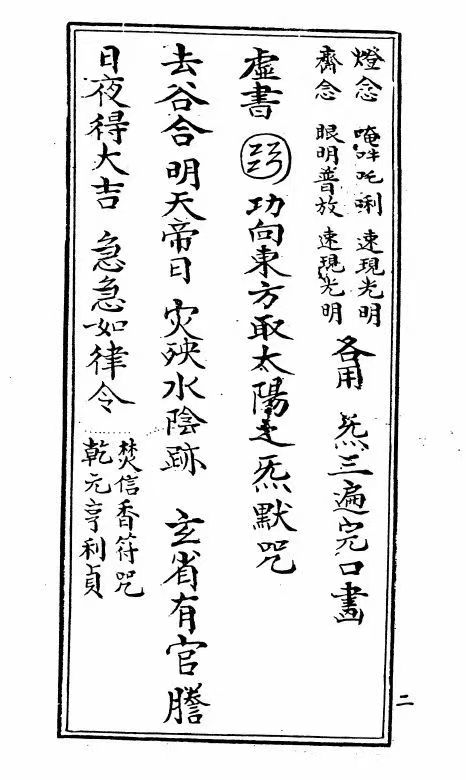 燈念 唵吽吒唎 速現光明
齊念 眼明普放 速現光明
各用 炁三遍完口畫
虛書 功向東方取太陽之炁默咒
去谷合明天帝日 灾殃水陰跡 玄省有官謄
日夜得大吉 急急如律令
焚信香符咒
乾元亨利貞
二